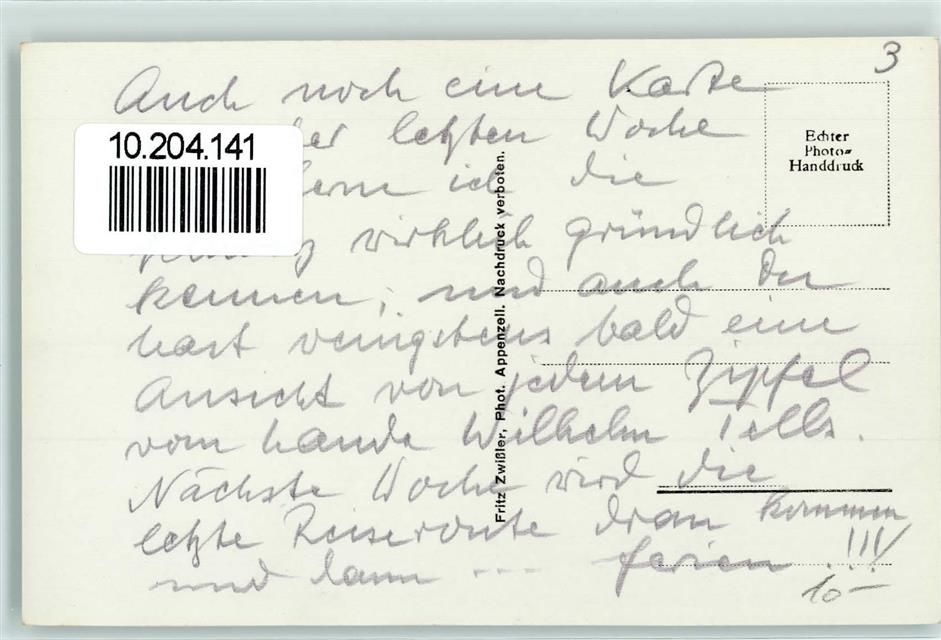 3
Auch noch eine Karte
der letzten Woche
lerne ich die
wirklich gründlich
kennen, und auch du
hast wenigstens bald eine
Ansicht von jedem Zipfel
vom Lande Wilhelm Tells.
Nächste Woche wird die
letzte Reiseroute dran kommen
und dann --- ferien !!!
10-
10.204.141
Echter
Photo=
Handdruck
Fritz Zwißler, Phot. Appenzell. Nachdruck verboten.